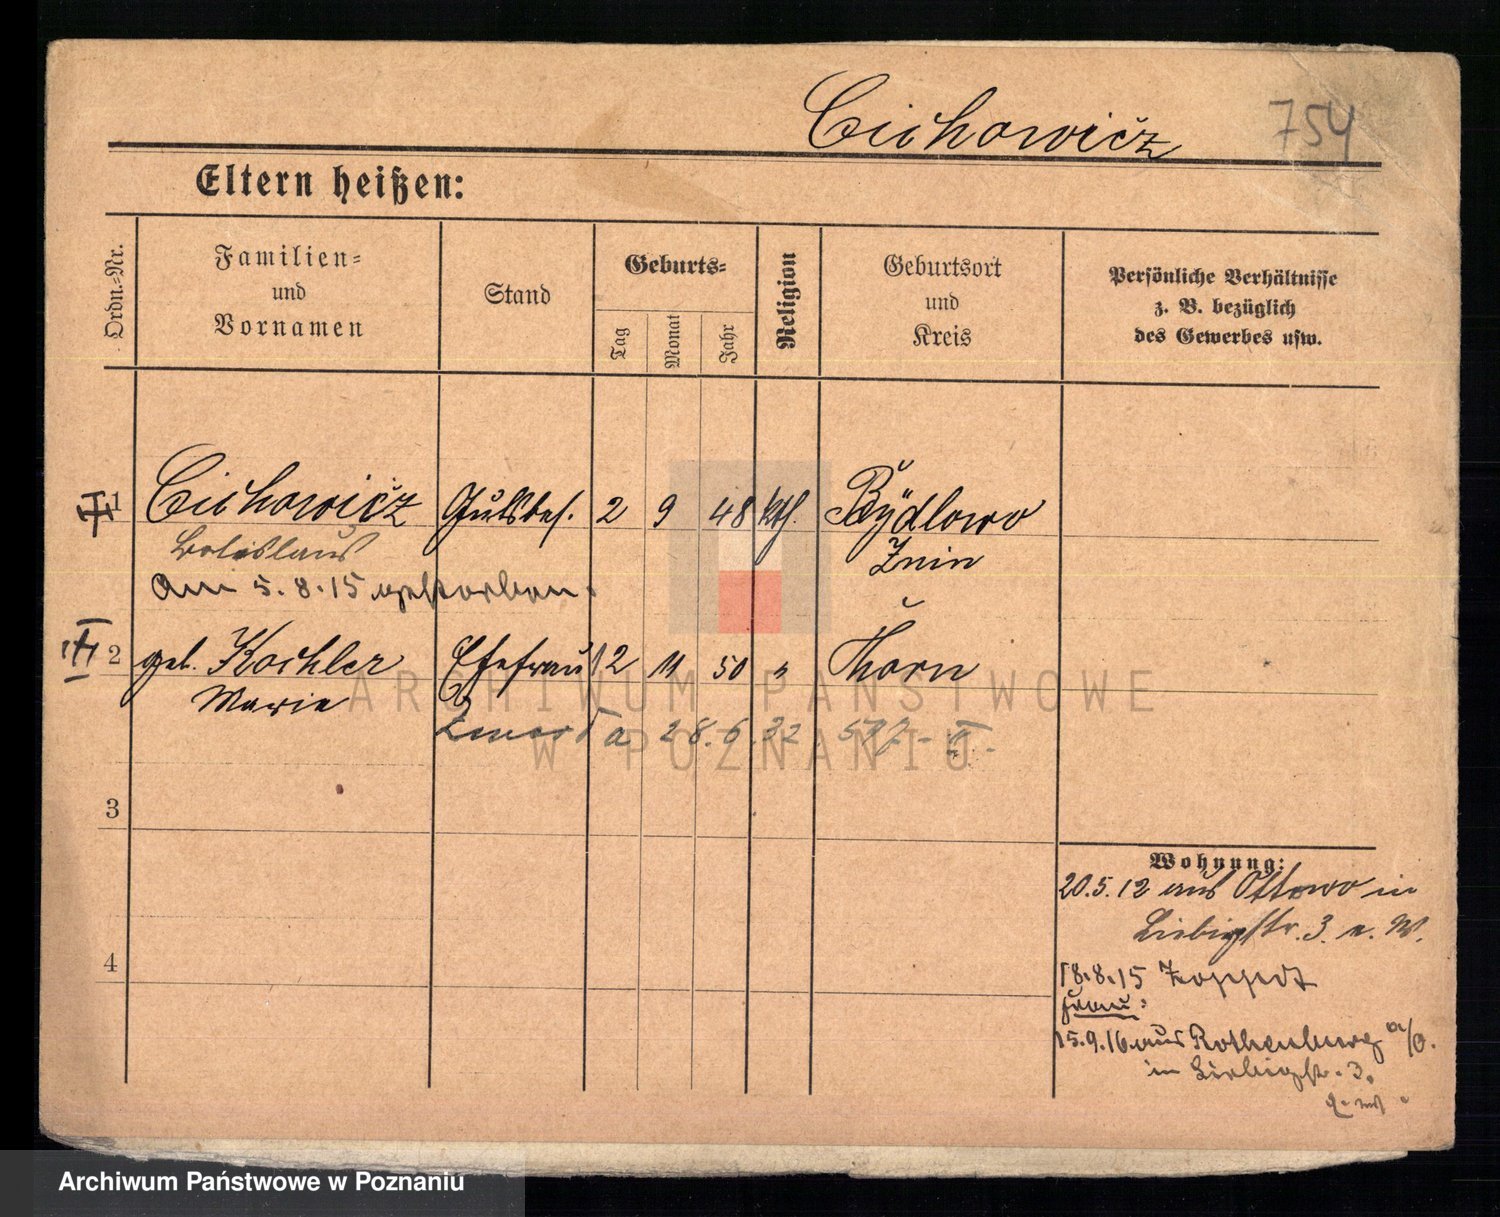 Cichowicz
754
Eltern heißen:
Ordn.=Nr.
Familien=
und
Vornamen
Stand
Geburts=
Tag
Monat
Jahr
Religion
Geburtsort
und
Kreis
Persönliche Verhältnisse
z. B. bezüglich
des Gewerbes usw.
1 Cichowicz Gutsbes. 2 9 48 kth. Bydlowo
Boleslaus Znin
am 5.8.15 gestorben.
2 geb. Koehler Ehefrau 12 11 50 " Thorn
Marie
Zmarła 28.6.32
3
4
Wohnung:
20.5.12 aus Ottowo in
Liebigstr. 3. e. W.
18.8.15 Zoppot
Frau:
15.9.16 aus Rothenburg a/O.
in Liebigstr. 3.
ARCHIWUM PAŃSTWOWE
W POZNANIU
Archiwum Państwowe w Poznaniu